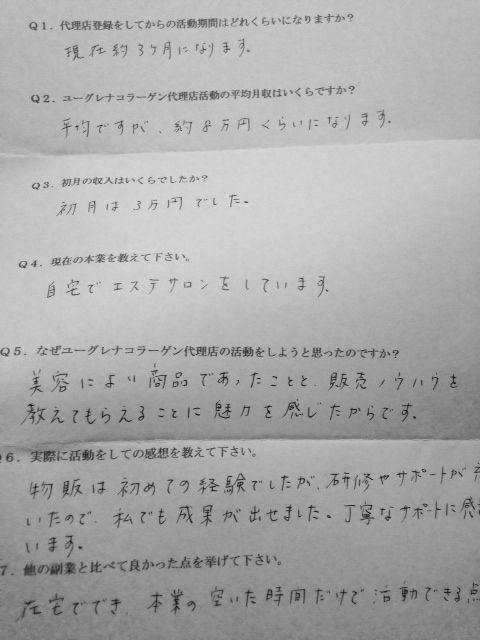 Q1．代理店登録をしてからの活動期間はどれくらいになりますか？
現在約3ケ月になります。
Q2．ユーグレナコラーゲン代理店活動の平均月収はいくらですか？
平均ですが、約8万円くらいになります。
Q3．初月の収入はいくらでしたか？
初月は3万円でした。
Q4．現在の本業を教えて下さい。
自宅でエステサロンをしています。
Q5．なぜユーグレナコラーゲン代理店の活動をしようと思ったのですか？
美容によい商品であったことと、販売ノウハウを
教えてもらえることに魅力を感じたからです。
Q6．実際に活動をしての感想を教えて下さい。
物販は初めての経験でしたが、研修やサポートが
いたので、私でも成果が出せました。丁寧なサポートに感
います。
7．他の副業と比べて良かった点を挙げて下さい。
在宅ででき、本業の空いた時間だけで活動できる点